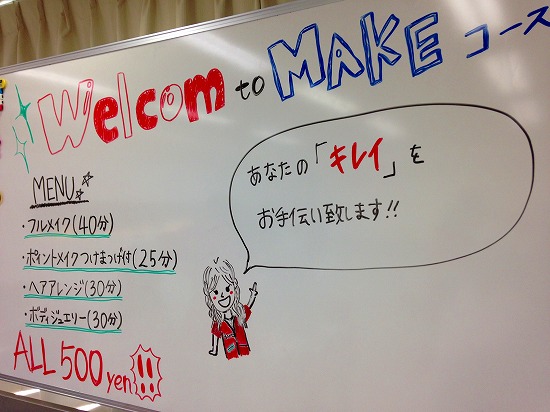 Welcom to MAKE コース
MENU
・フルメイク(40分)
・ポイントメイクつけまつげ付(25分)
・ヘアアレンジ(30分)
・ボディジュエリー(30分)
ALL 500 yen!!
あなたの「キレイ」を
お手伝い致します!!